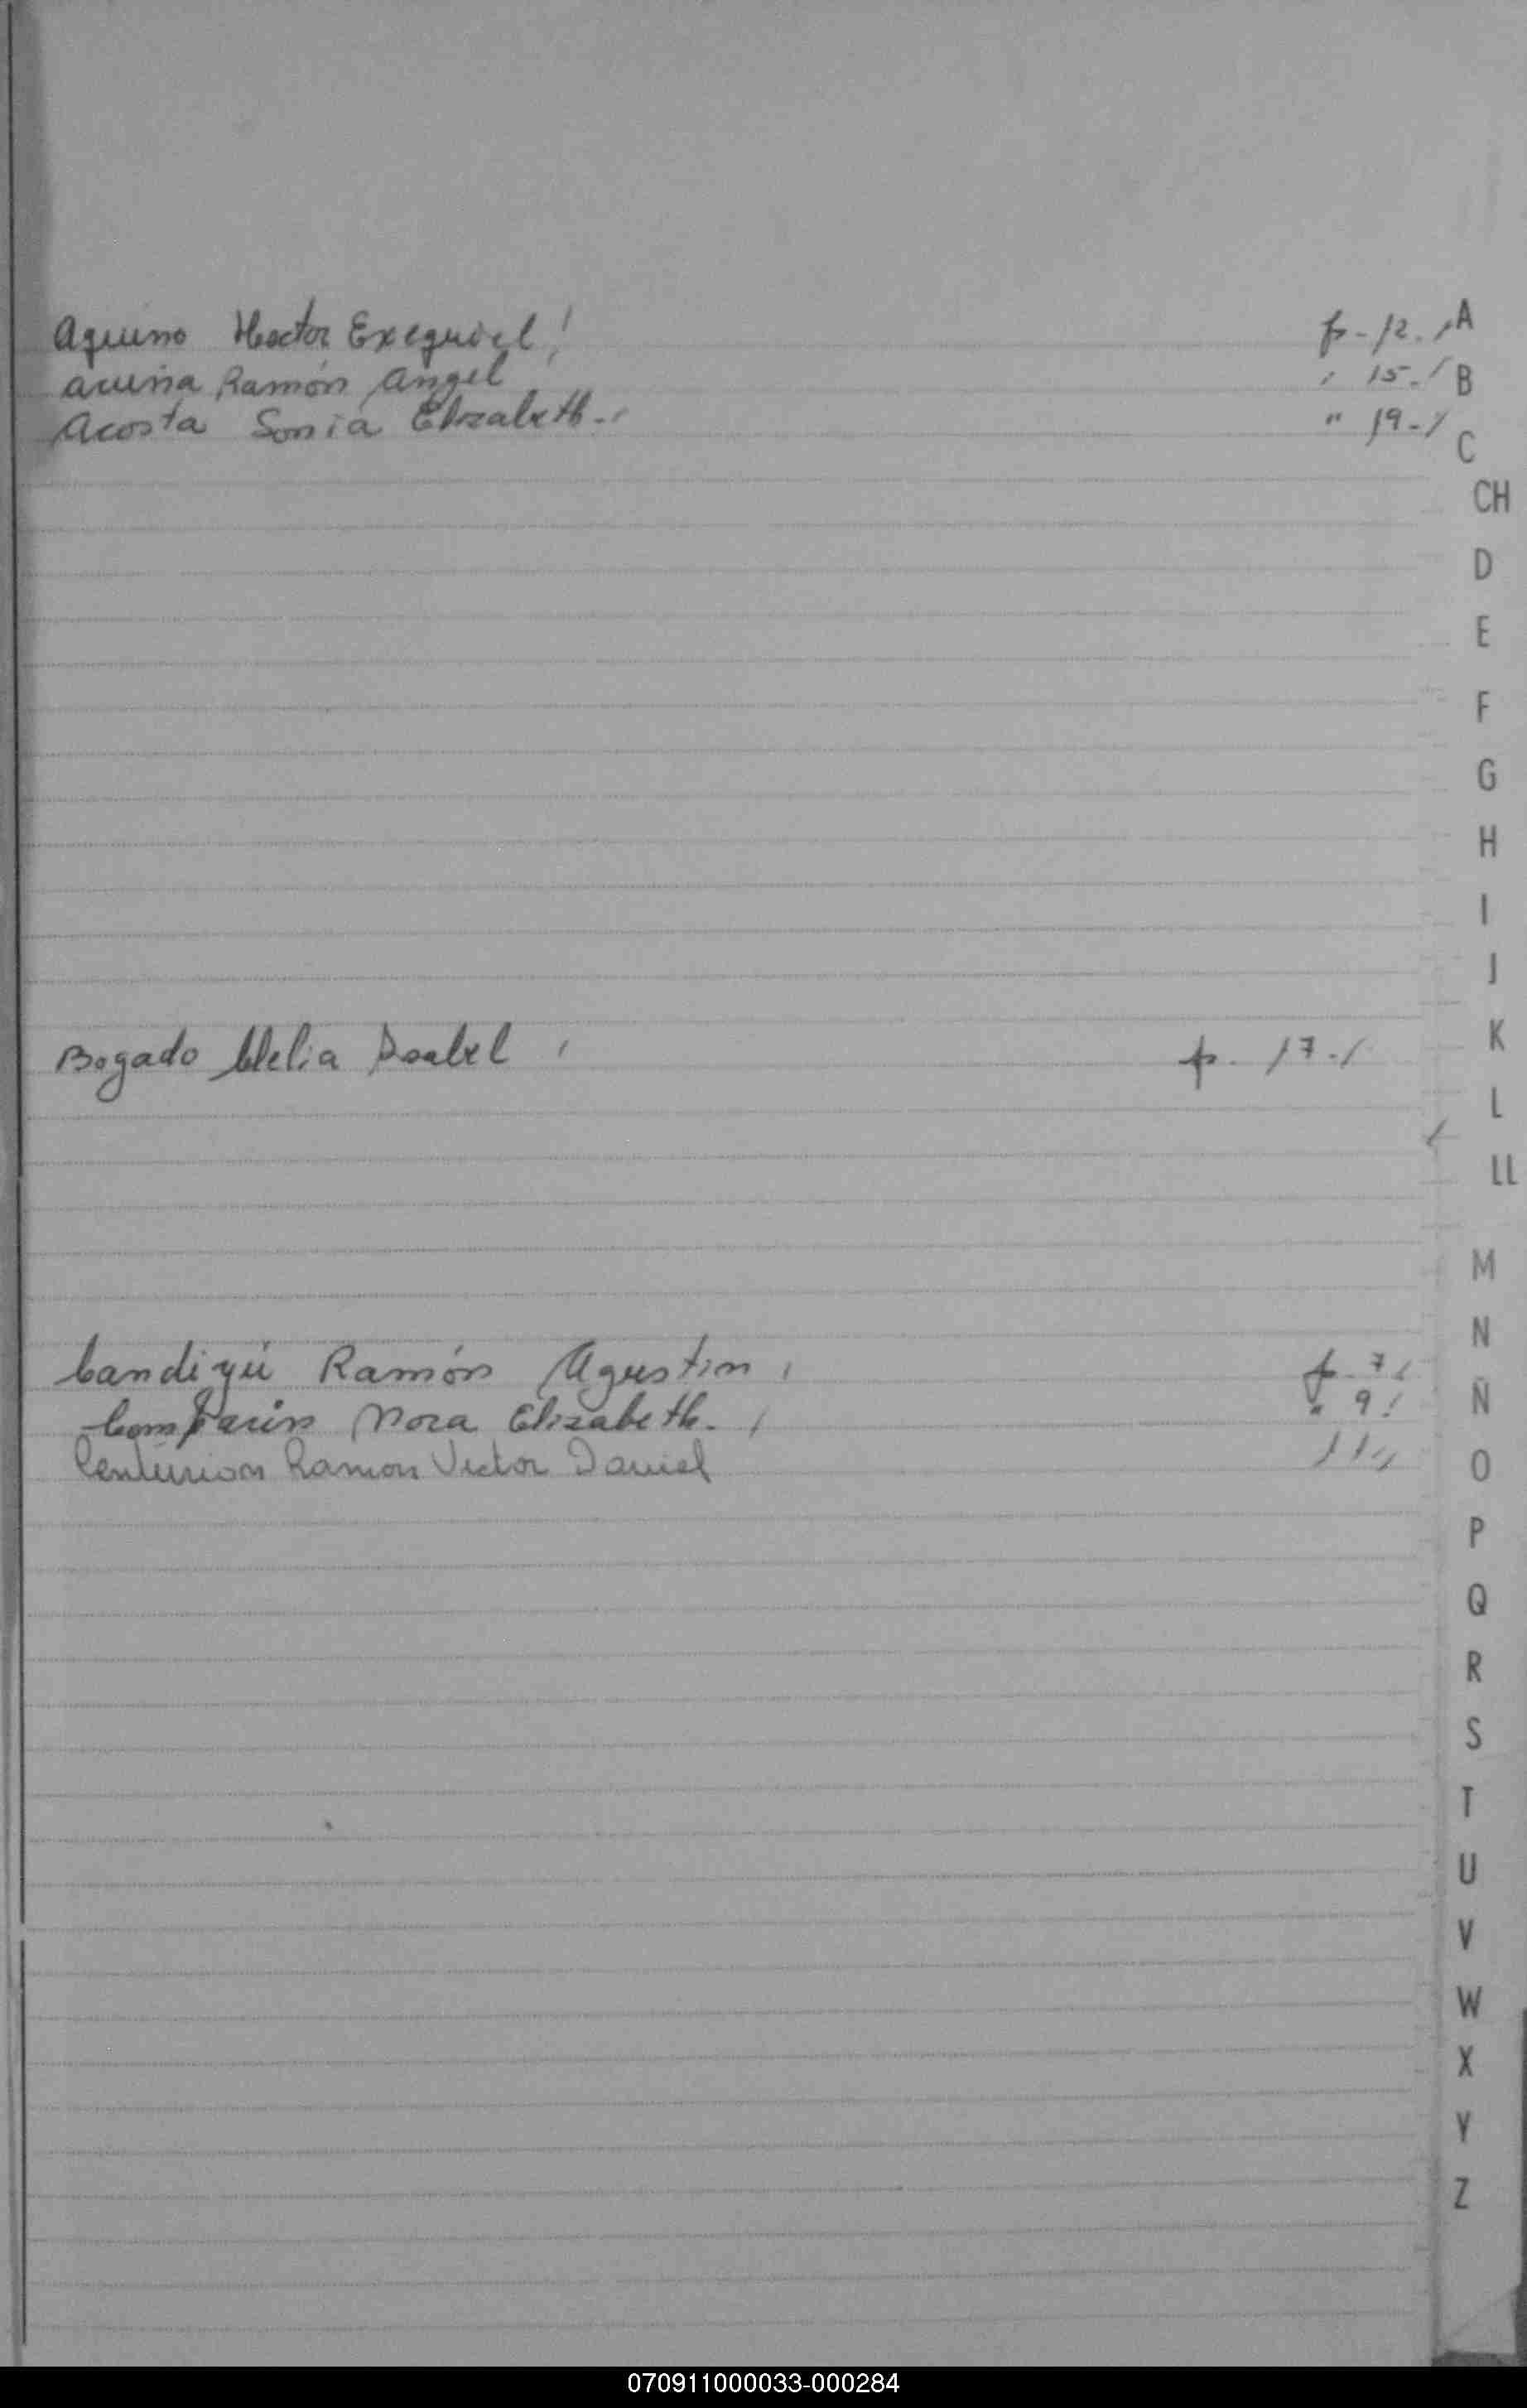 Aquino Hector Exequiel p - 12. A
acuña Ramón Angel " 15.- B
Acosta Sonia Elizabeth.- " 19.- C
CH
D
E
F
G
H
I
J
Bogado Clelia Isabel p. 17.- K
L
LL
M
N
Candiyú Ramón Agustin f. 7
Comparin Nora Elizabeth. " 9 Ñ
Centurion Ramon Victor Daniel 11 O
P
Q
R
S
T
U
V
W
X
Y
Z
070911000033-000284